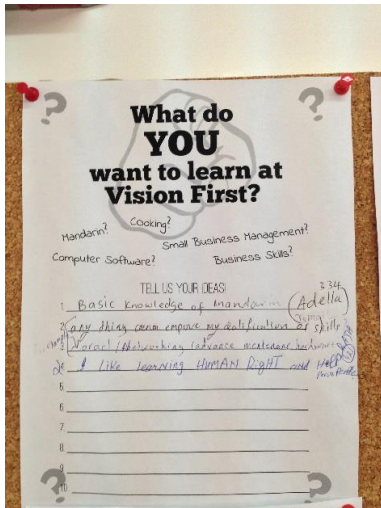 What do
YOU
want to learn at
Vision First?
Cooking?
Mandarin?
Small Business Management?
Computer Software?
Business Skills?
TELL US YOUR IDEAS!
334
1. Basic knowledge of mandarin (Adella)
2. any thing can my or skills
3.
I Like learning HUMAN RigHT and
5.
6.
7.
8.
9.
10.